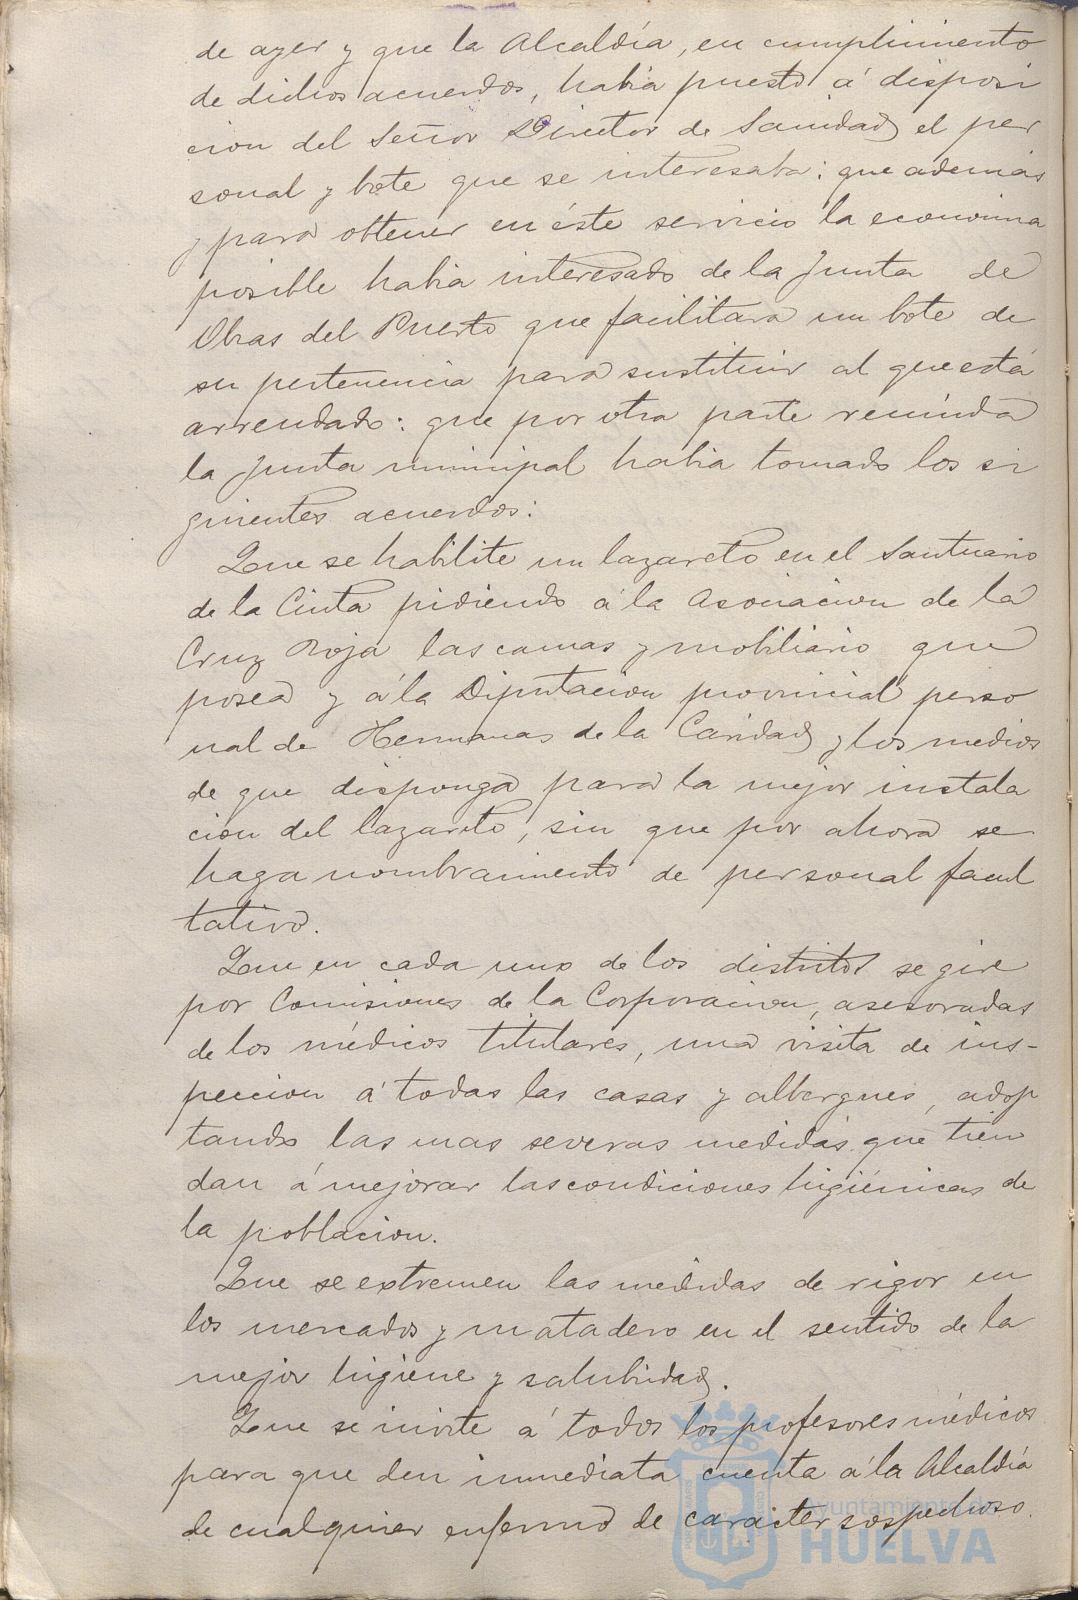 de ayer y que la Alcaldía, en cumplimiento
de dichos acuerdos, habia puesto á disposi
cion del Señor Director de Sanidad el per
sonal y bote que se interesaba: que además
y para obtener en éste servicio la economia
posible habia interesado de la Junta de
Obras del Puerto que facilitara un bote de
su pertenencia para sustituir al que está
arrendado: que por otra parte reunida
la Junta municipal habia tomado los si
guientes acuerdos:
Que se habilite un lazareto en el Santuario
de la Cinta pidiendo á la Asociacion de la
Cruz Roja las camas y mobiliario que
posea y á la Diputacion provincial perso
nal de Hermanas de la Caridad y los medios
de que disponga para la mejor instala
cion del lazareto, sin que por ahora se
haga nombramiento de personal facul
tativo.
Que en cada uno de los distritos se gire
por Comisiones de la Corporacion, asesoradas
de los médicos titulares, una visita de ins-
peccion á todas las casas y albergues, adop
tando las mas severas medidas que tien
dan á mejorar las condiciones higiénicas de
la poblacion.
Que se extremen las medidas de rigor en
los mercados y matadero en el sentido de la
mejor higiene y salubridad.
Que se invite á todos los profesores médicos
para que den inmediata cuenta á la Alcaldía
de cualquier enfermo de carácter sospechoso.
Ayuntamiento de
HUELVA